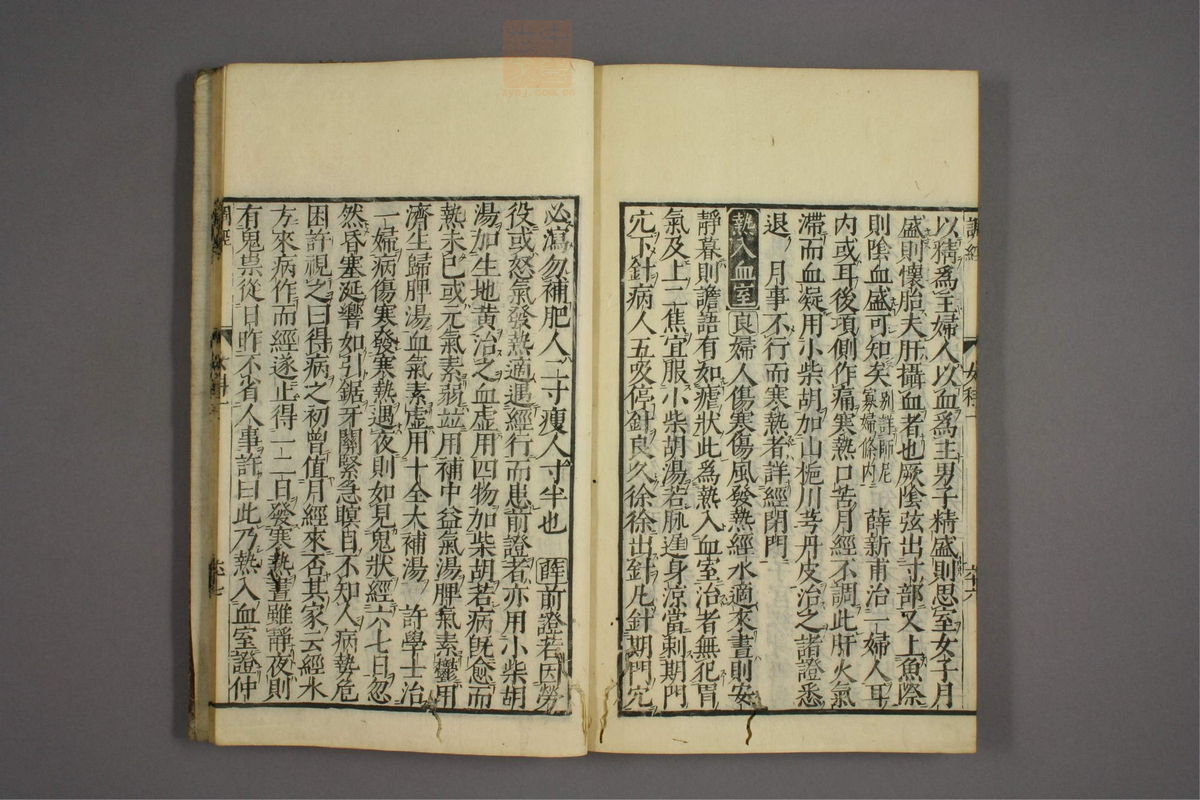 以精爲主婦人以血爲主男子精盛則思室女子月
盛則懷胎夫肝攝血者也厥陰弦出寸部又上魚際
則陰血盛可知矣別詳師尼寡婦條内 薛新甫治一婦人耳
内或耳後項側作痛寒熱口苦月經不調此肝火氣
滯而血凝用小柴胡加山梔川芎丹皮治之諸證悉
退 月事不行而寒熱者詳經閉門
熱入血室 良婦人傷寒傷風發熱經水適來晝則安
靜暮則譫語有如瘧狀此爲熱入血室治者無犯胃
氣及上二焦宜服小柴胡湯若脉遲身涼當刺期門
穴下針病人五吸停針良久徐徐出針凡針期門穴
必瀉勿補肥人二寸瘦人寸半也 薛前證若因勞
役或怒氣發熱適遇經行而患前證者亦用小柴胡
湯加生地黄治之血虛用四物加柴胡若病旣愈而
熱未已或元氣素弱並用補中益氣湯脾氣素鬱用
濟生歸脾湯血氣素虛用十全大補湯 許學士治
一婦病傷寒發寒熱遇夜則如見鬼狀經六七日忽
然昏塞涎響如引鋸牙關緊急瞑目不知人病勢危
困許視之曰得病之初曾值月經來否其家云經水
方來病作而經遂止得一二日發寒熱晝雖靜夜則
有鬼祟從日昨不省人事許曰此乃熱入血室證仲
調經
女科一
調經